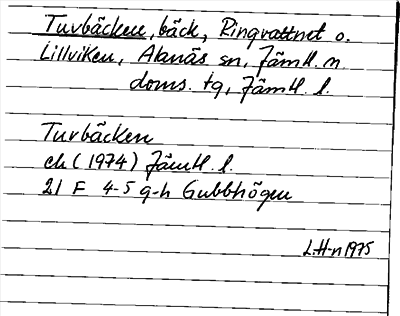 Turbäcken, bäck, Ringvattnet o.
Lillviken, Alanäs sn, Jämtl. n.
doms. tg, Jämtl. l.
Turbäcken
ek (1974) Jämtl. l.
21 F 4-5 g-h Gubbhögen
L.H-n 1975